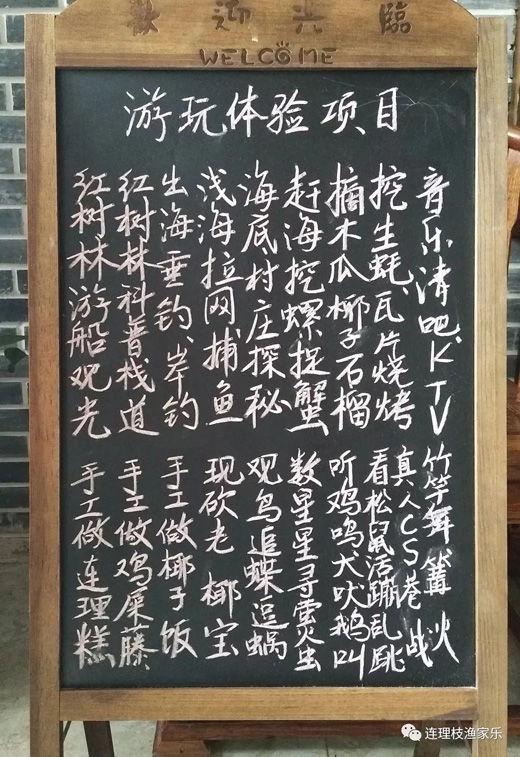 歡迎光臨
WELCOME
游玩体验项目
音乐清吧、KTV
挖生蚝、瓦片烧烤
摘木瓜椰子石榴
赶海挖螺捉蟹
海底村庄探秘
浅海拉网捕鱼
出海垂钓、岸钓
红树林科普栈道
红树林游船观光
竹竿舞 篝火
真人CS巷战
看松鼠活蹦乱跳
听鸡鸣犬吠鹅叫
数星星寻萤虫
观鸟追蝶逗蜗
现砍老椰宝
手工做椰子饭
手工做鸡屎藤
手工做连理糕
连理枝渔家乐